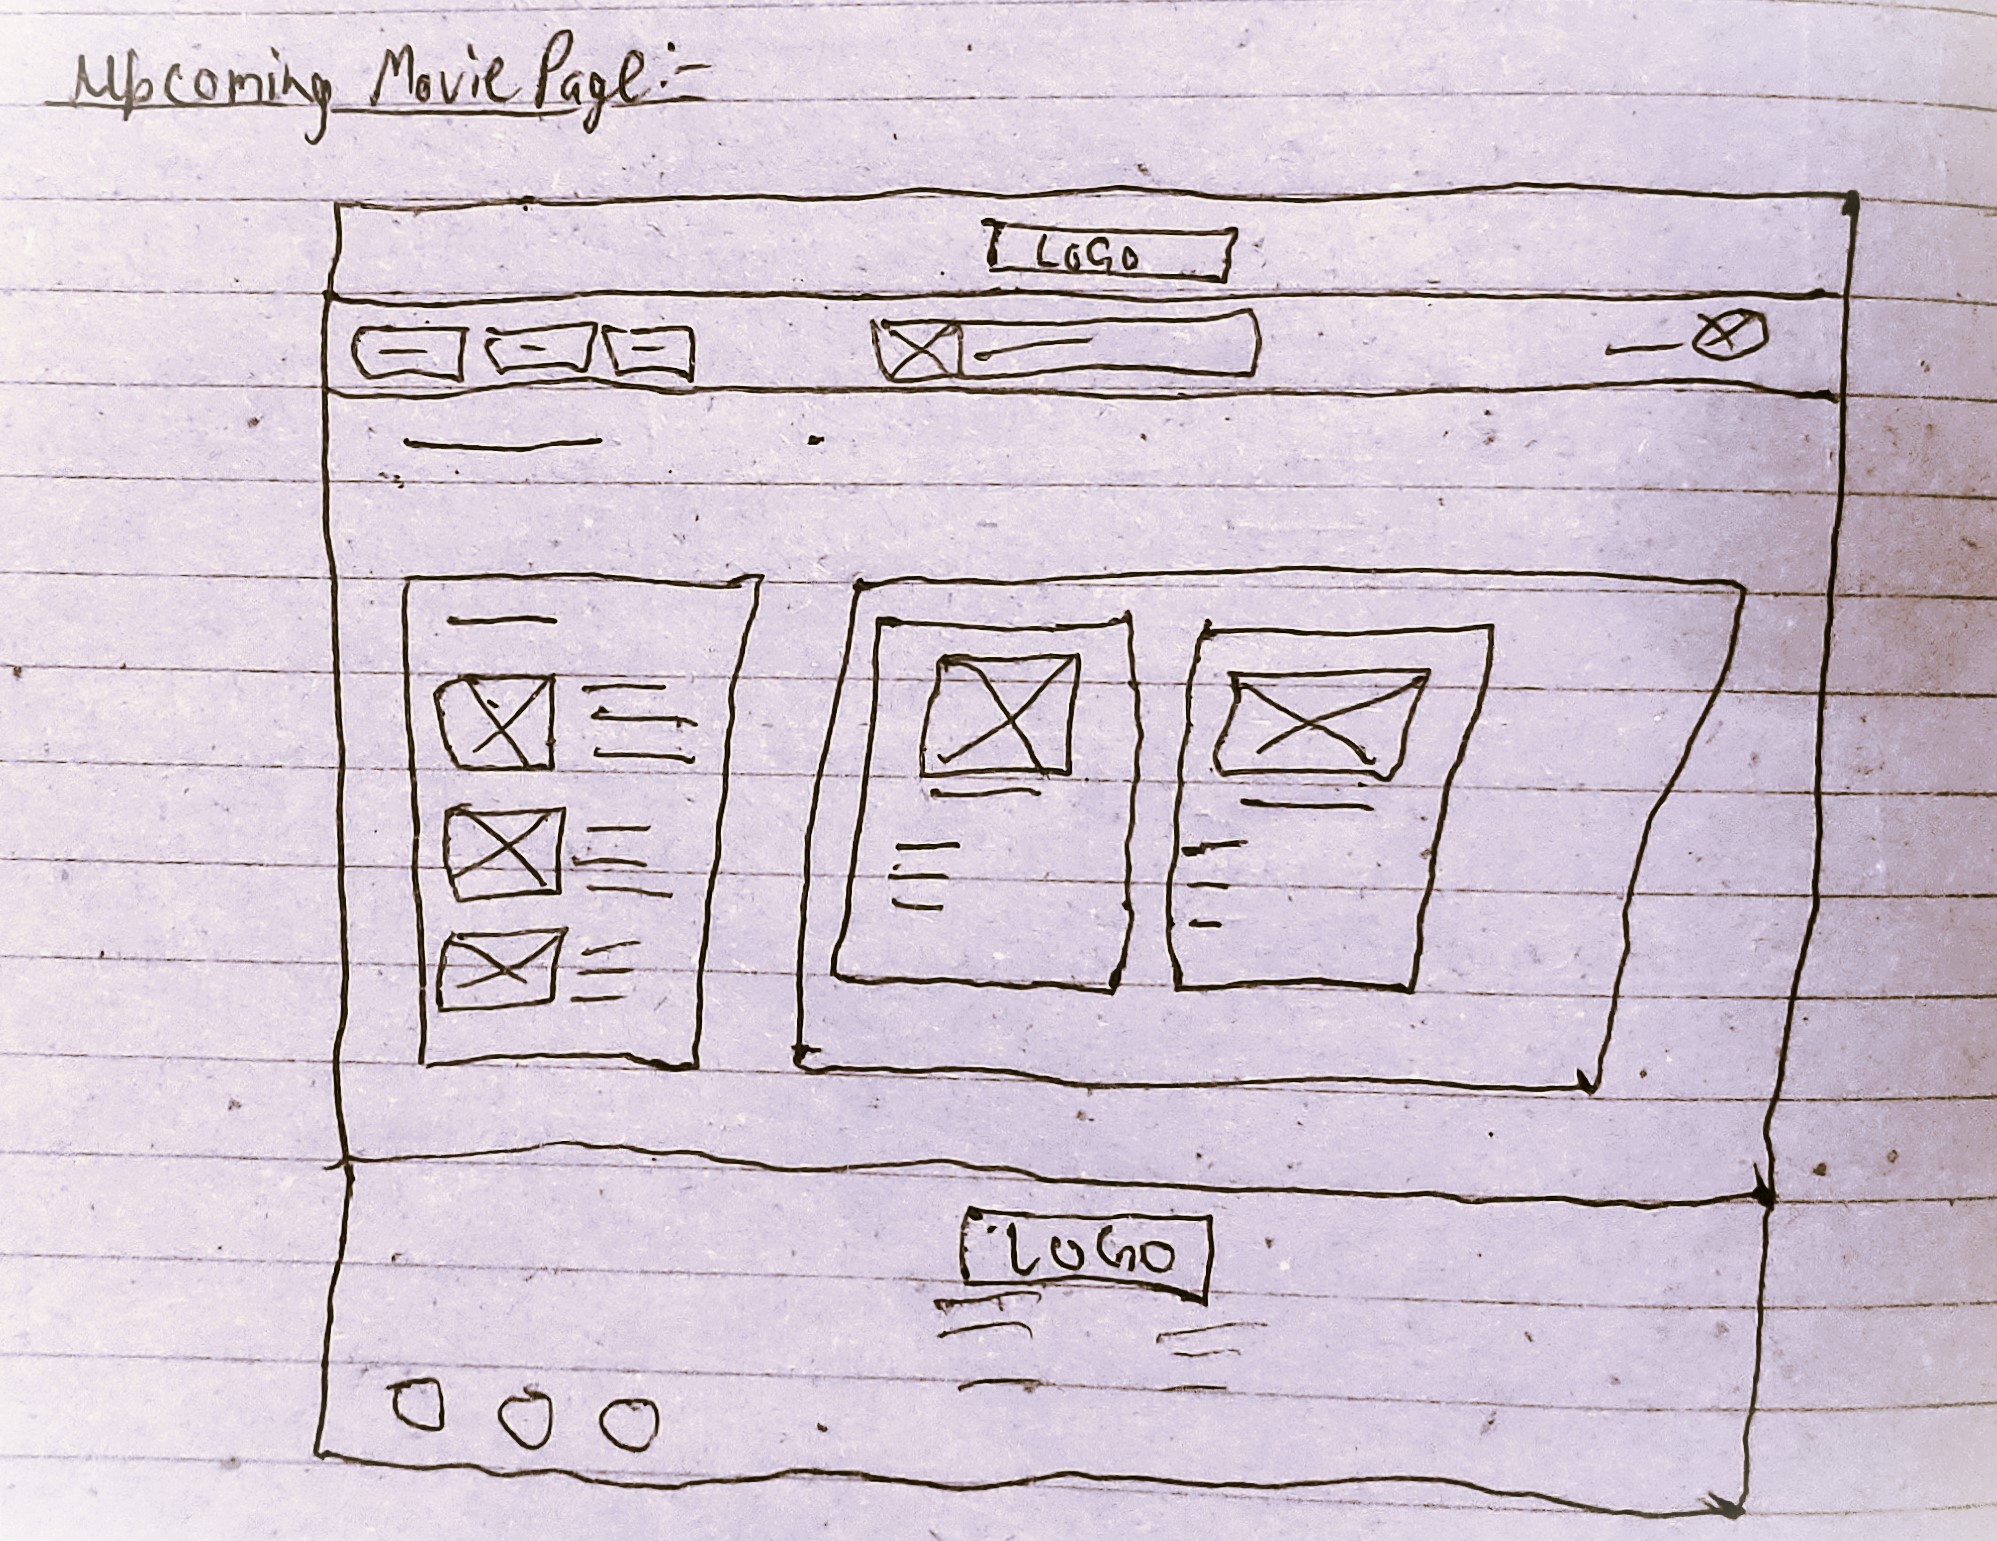 Upcoming Movie Page:-
LOGO
LOGO